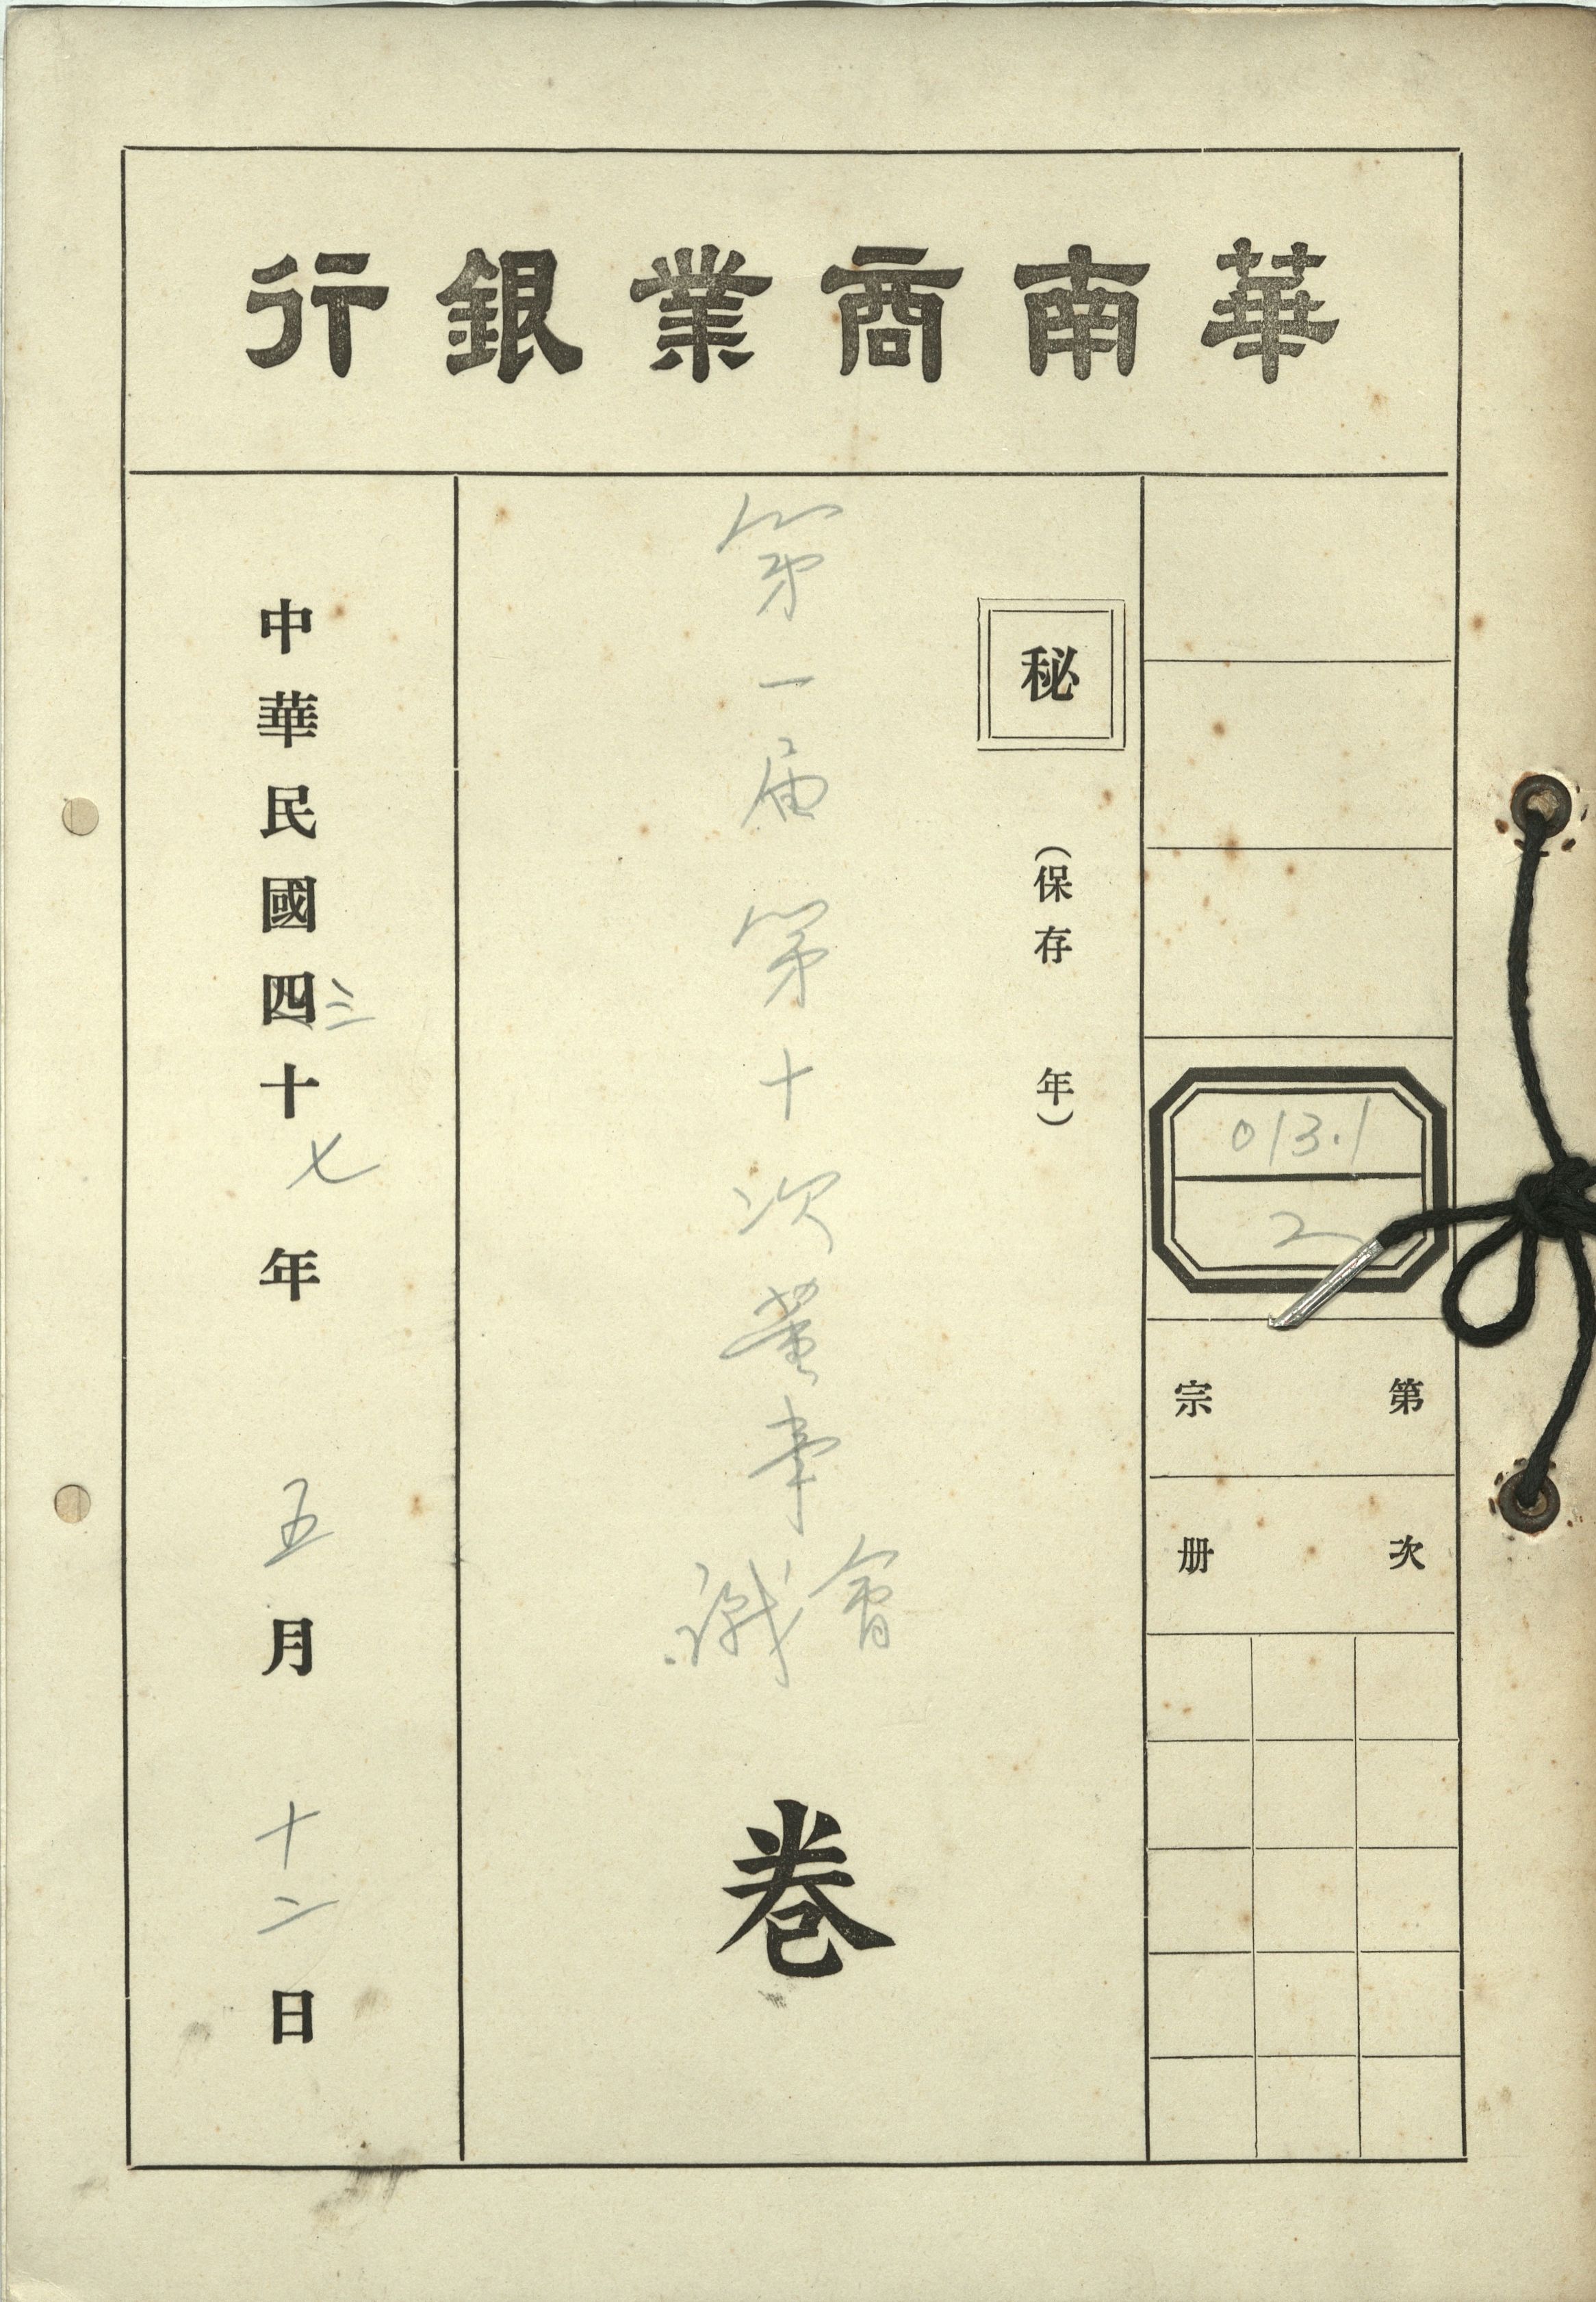 華南商業銀行
013.1
2
第 宗
次 册
秘
(保存 年)
第一屆第十次董事會議
卷
中華民國四三十七年五月十二日